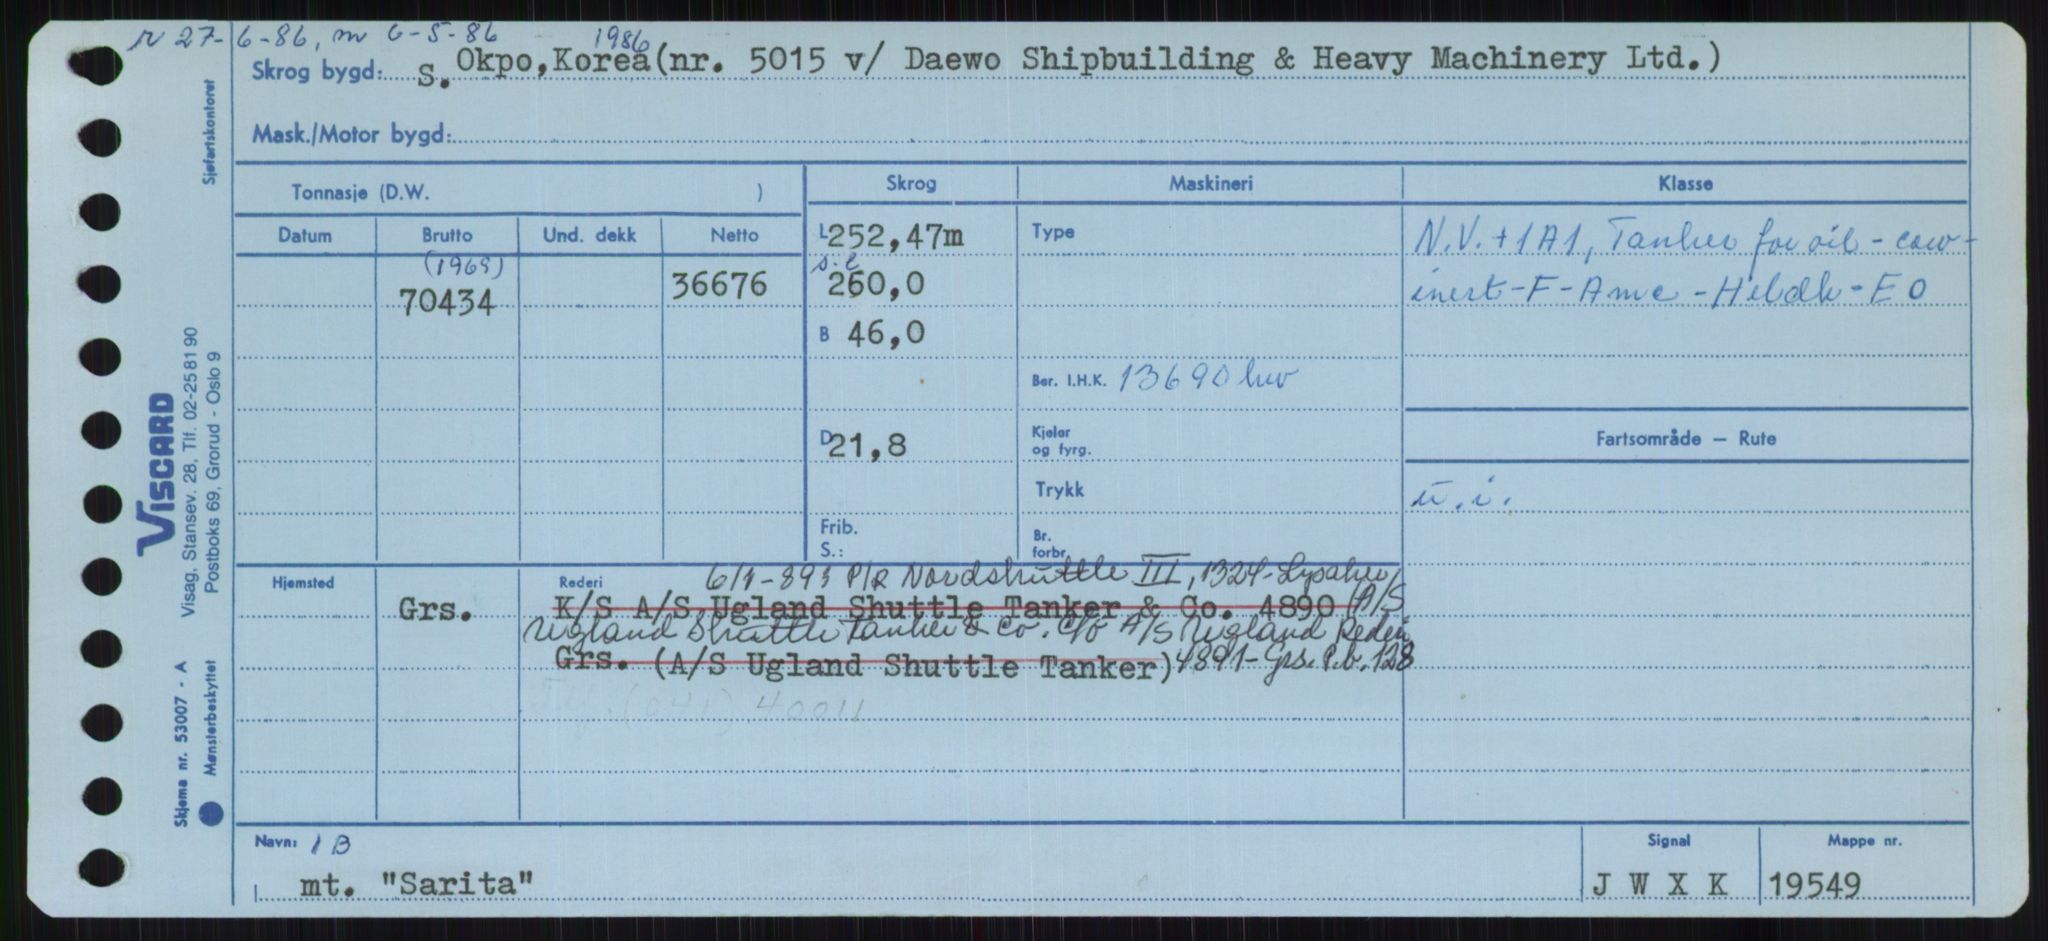 r 27-6-86, m 6-5-86
1986
Skrog bygd: S. Okpo, Korea (nr. 5015 v/ Daewo Shipbuilding & Heavy Machinery Ltd.)
Mask./Motor bygd:
Tonnasje (D.W. )
Skrog Maskineri Klasse
Datum Brutto Und. dekk Netto
L 252,47m
Type
N.V. +1A1, Tanker for oil - cow -
(1969)
70434 36676
s.l
260,0
inert - F - Amc - Heldk - E0
B 46,0
Ber. I.H.K. 13690 kw
D 21,8
Kjeler
og fyrg.
Fartsområde – Rute
Trykk
u. i.
Frib.
S.:
Br.
forbr.
Hjemsted Rederi
6/1-89: P/R Nordshuttle III, 1324-Lysaker
Grs. K/S A/S Ugland Shuttle Tanker & Co. 4890 (A/S
Ugland Shuttle Tanker & Co. c/o A/S Ugland Rederi
Grs. (A/S Ugland Shuttle Tanker) 4891-Grs. P.b. 128
(041) 40011
Navn: 1 B
mt. "Sarita"
Signal
J W X K
Mappe nr.
19549
Sjøfartskontoret
VISCARD
Visag, Stansev. 28, Tlf. 02-25 81 90
Postboks 69, Grorud - Oslo 9
Skjema nr. 53007 - A
Mønsterbeskyttet